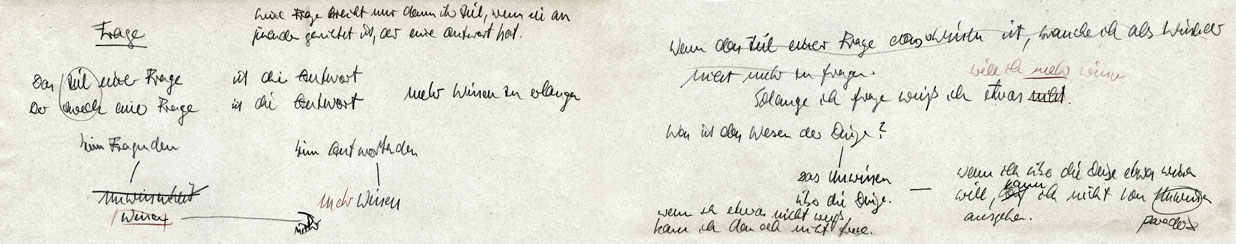 Frage
Eine Frage erreicht nur dann ihr Ziel, wenn sie an
jemanden gerichtet ist, der eine Antwort hat.
Das Ziel einer Frage ist die Antwort
Der Zweck einer Frage ist die Antwort mehr Wissen zu erlangen
beim Fragenden beim Antwortenden
Unwissenheit
Wissen mehr
mehr Wissen
Wenn das Ziel einer Frage das Wissen ist, brauche ich als Wissender
nicht mehr zu fragen. will ich mehr wissen
Solange ich frage weiß ich etwas nicht.
Was ist das Wesen der Dinge?
Das Unwissen
über die Dinge.
wenn ich etwas nicht weiß,
kann ich den ich nicht
wenn ich über die Dinge etwas wissen
will, kann ich nicht vom Unwissen
ausgehen. paradox